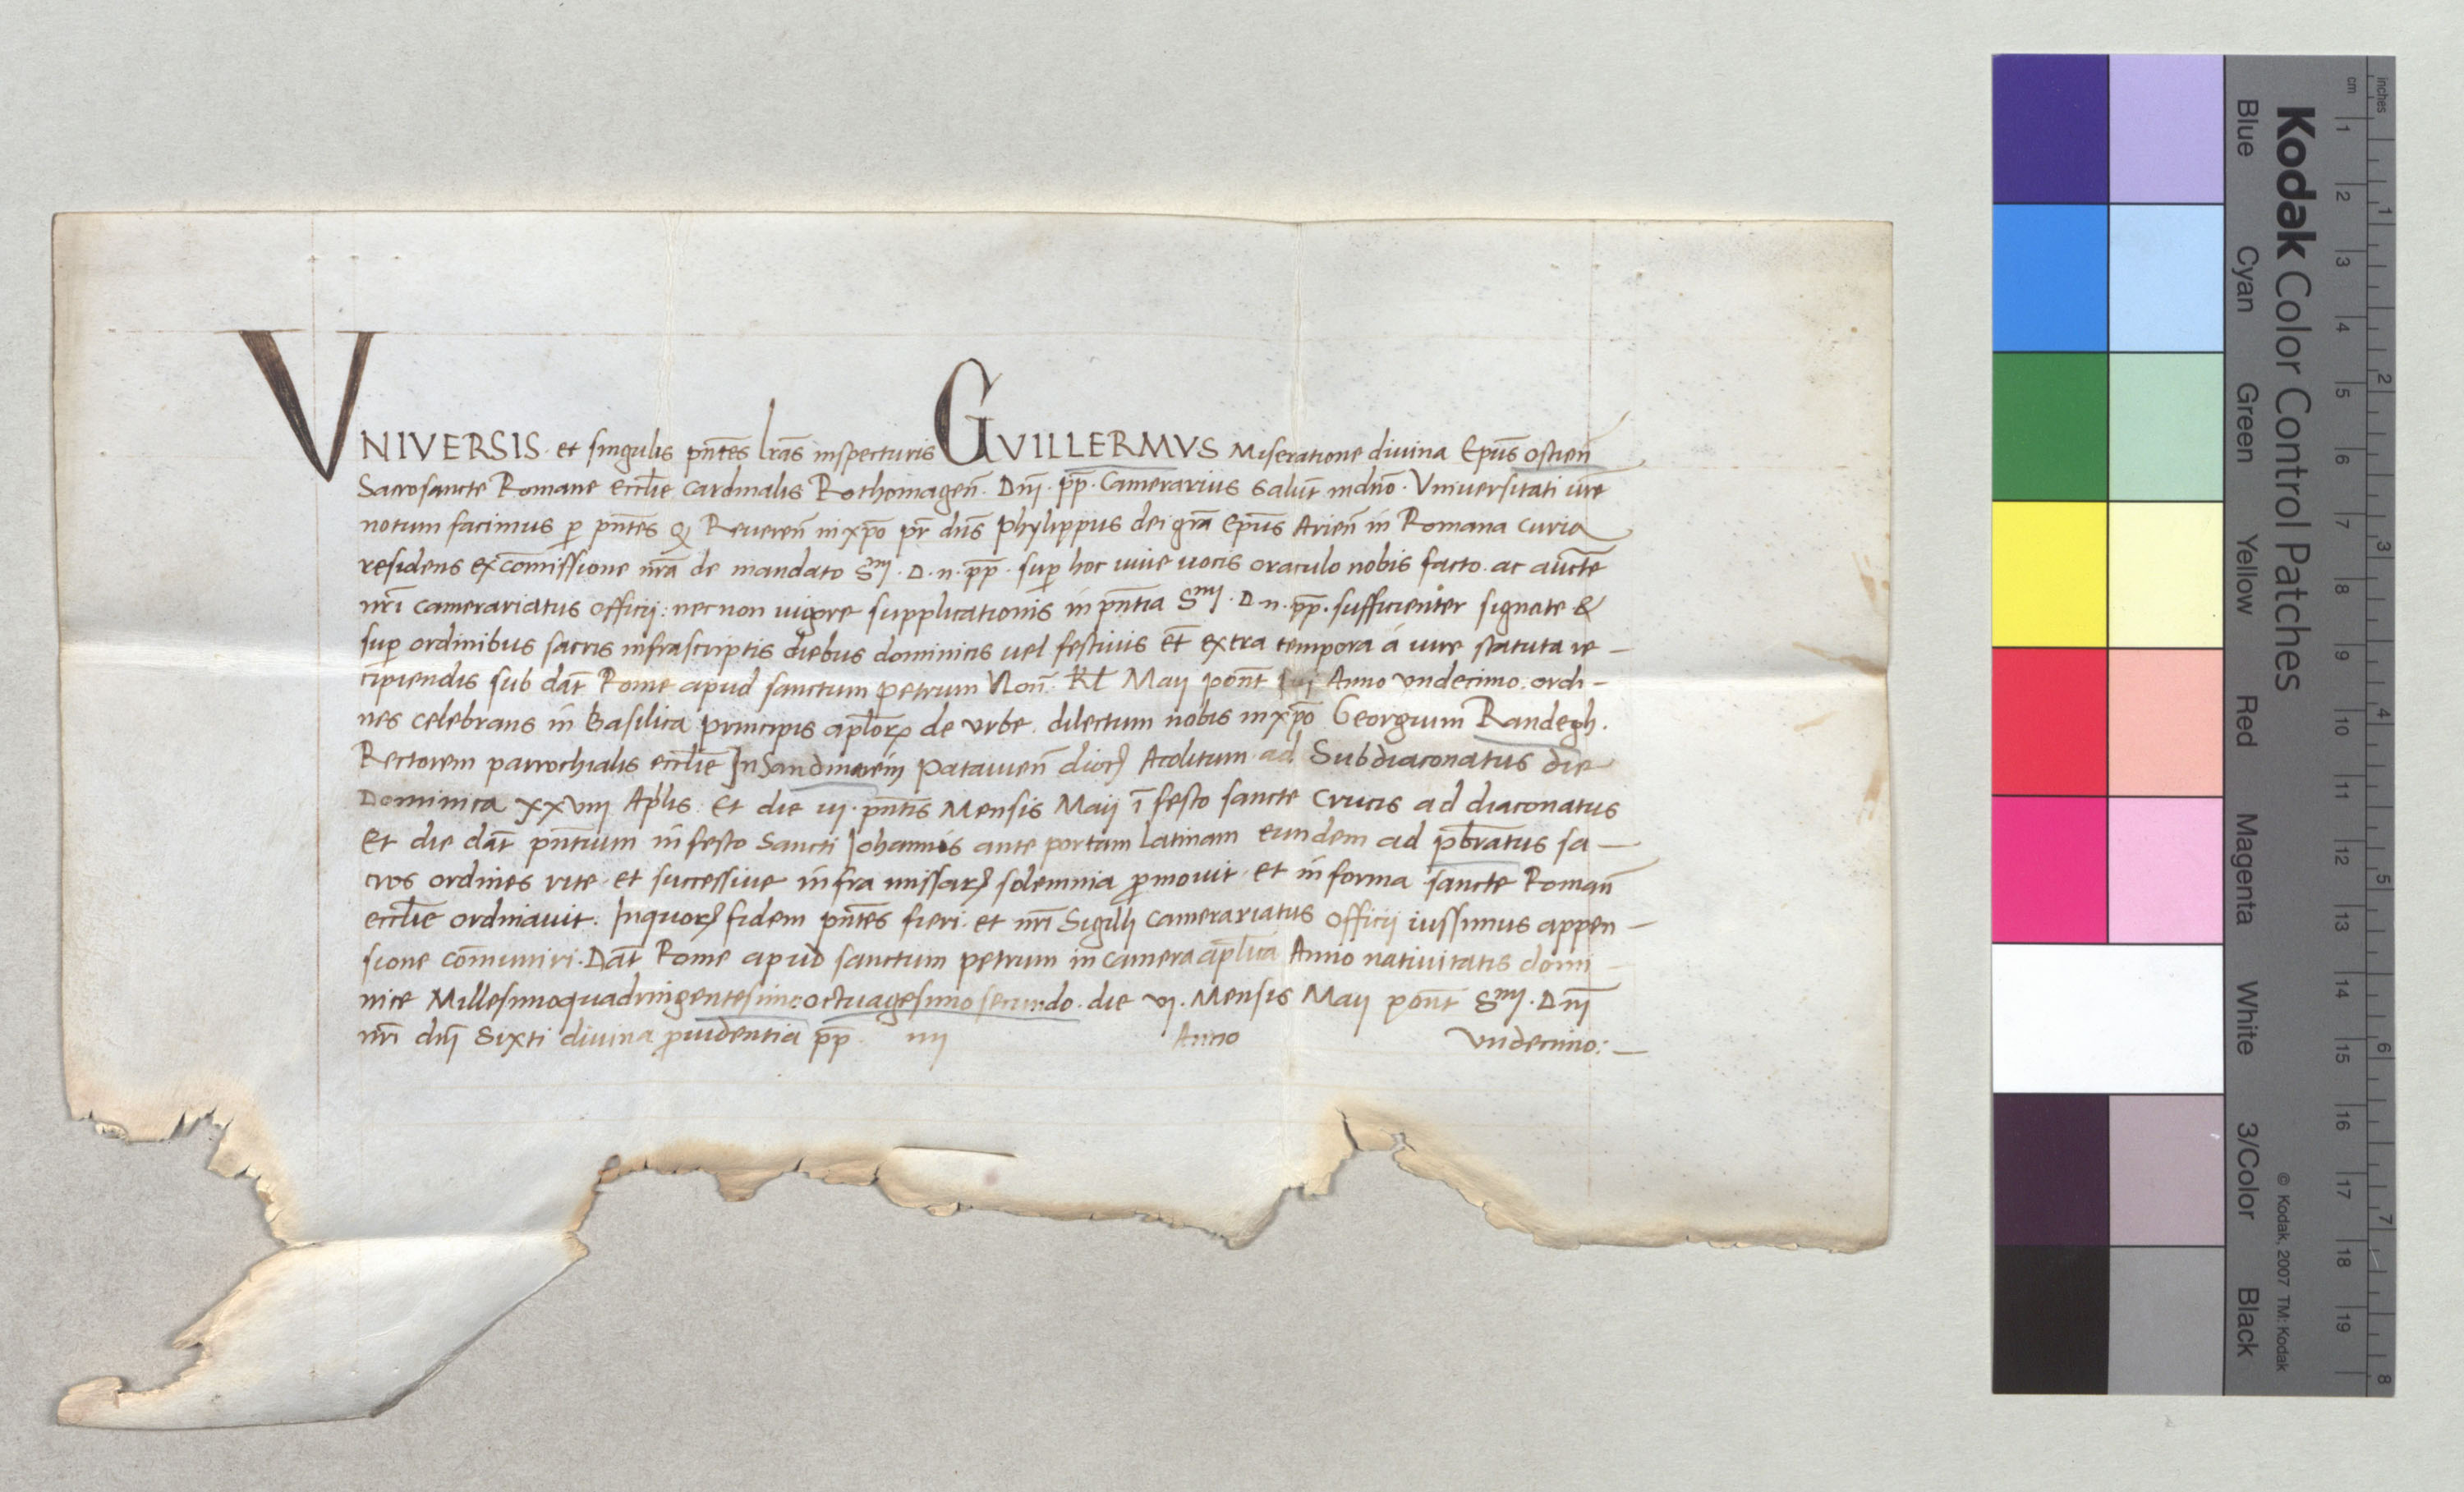 VNIVERSIS. et singulis pñtes lr̃as inspecturis GVILLERMVS Miseratione diuina Ep̃us ostieñ
Sacrosancte Romane eccl̃ie Cardinalis Rothomageñ. Dñj. pp̃. Camerarius Salut̃ in dño. Vniuersitati ur̃e
notum facimus p pñtes q Reuereñ in xp̃o pr̃ dñs Phylippus dei gr̃a Ep̃us Arieñ in Romana Curia
residens ex com̃issione nr̃a de mandato Smj. D. n. pp̃. sup hoc uiue uocis oraculo nobis facto. ac auct̃e
nr̃i camerariatus officij: necnon uigore supplicationis in pñtia Smj. D. n. pp̃. sufficienter signate &
sup ordinibus sacris infrascriptis diebus dominicis uel festiuis et̃ extra tempora á iure statuta re–
cipiendis sub dat̃ Rome apud sanctum petrum Noñ. Kl̃ Maij pont̃ sui Anno vndecimo. ordi–
nes celebrans in Basilica principis apl̃orꝝ de vrbe. dilectum nobis in xp̃o Georgium Randegh.
Rectorem parrochialis eccl̃ie In Sandinarein Patauieñ dioc̃ Acolitum ad Subdiaconatus die
Dominica xxviij Ap̃lis. Et die iij. pñtis Mensis Maij ĩ festo sancte Crucis ad diaconatus
Et die dat̃ pñtium in festo Sancti Iohannis ante portam latinam eundem ad p̃bratus sa–
cros ordines rite. et successiue infra missarꝝ solemnia ꝓmouit. et in forma sancte Romañ
eccl̃ie ordinauit. In quorꝝ fidem pñtes fieri. et nr̃i Sigilli camerariatus officij iussimus appen–
sione com̃uniri. Dat̃ Rome apud sanctum petrum in camera apl̃ica Anno natiuitatis domi–
nice Millesimoquadringentesimooctuagesimo secundo. die vj. Mensis Maij pont̃ Smj. Dñj
nr̃i dñj Sixti diuina ꝓuidentia pp̃ iiij Anno Vndecimo: –
Kodak Color Control Patches
© Kodak, 2007 TM: Kodak
Blue Cyan Green Yellow Red Magenta White 3/Color Black
cm 1 2 3 4 5 6 7 8 9 10 11 12 13 14 15 16 17 18 19
inches 1 2 3 4 5 6 7 8